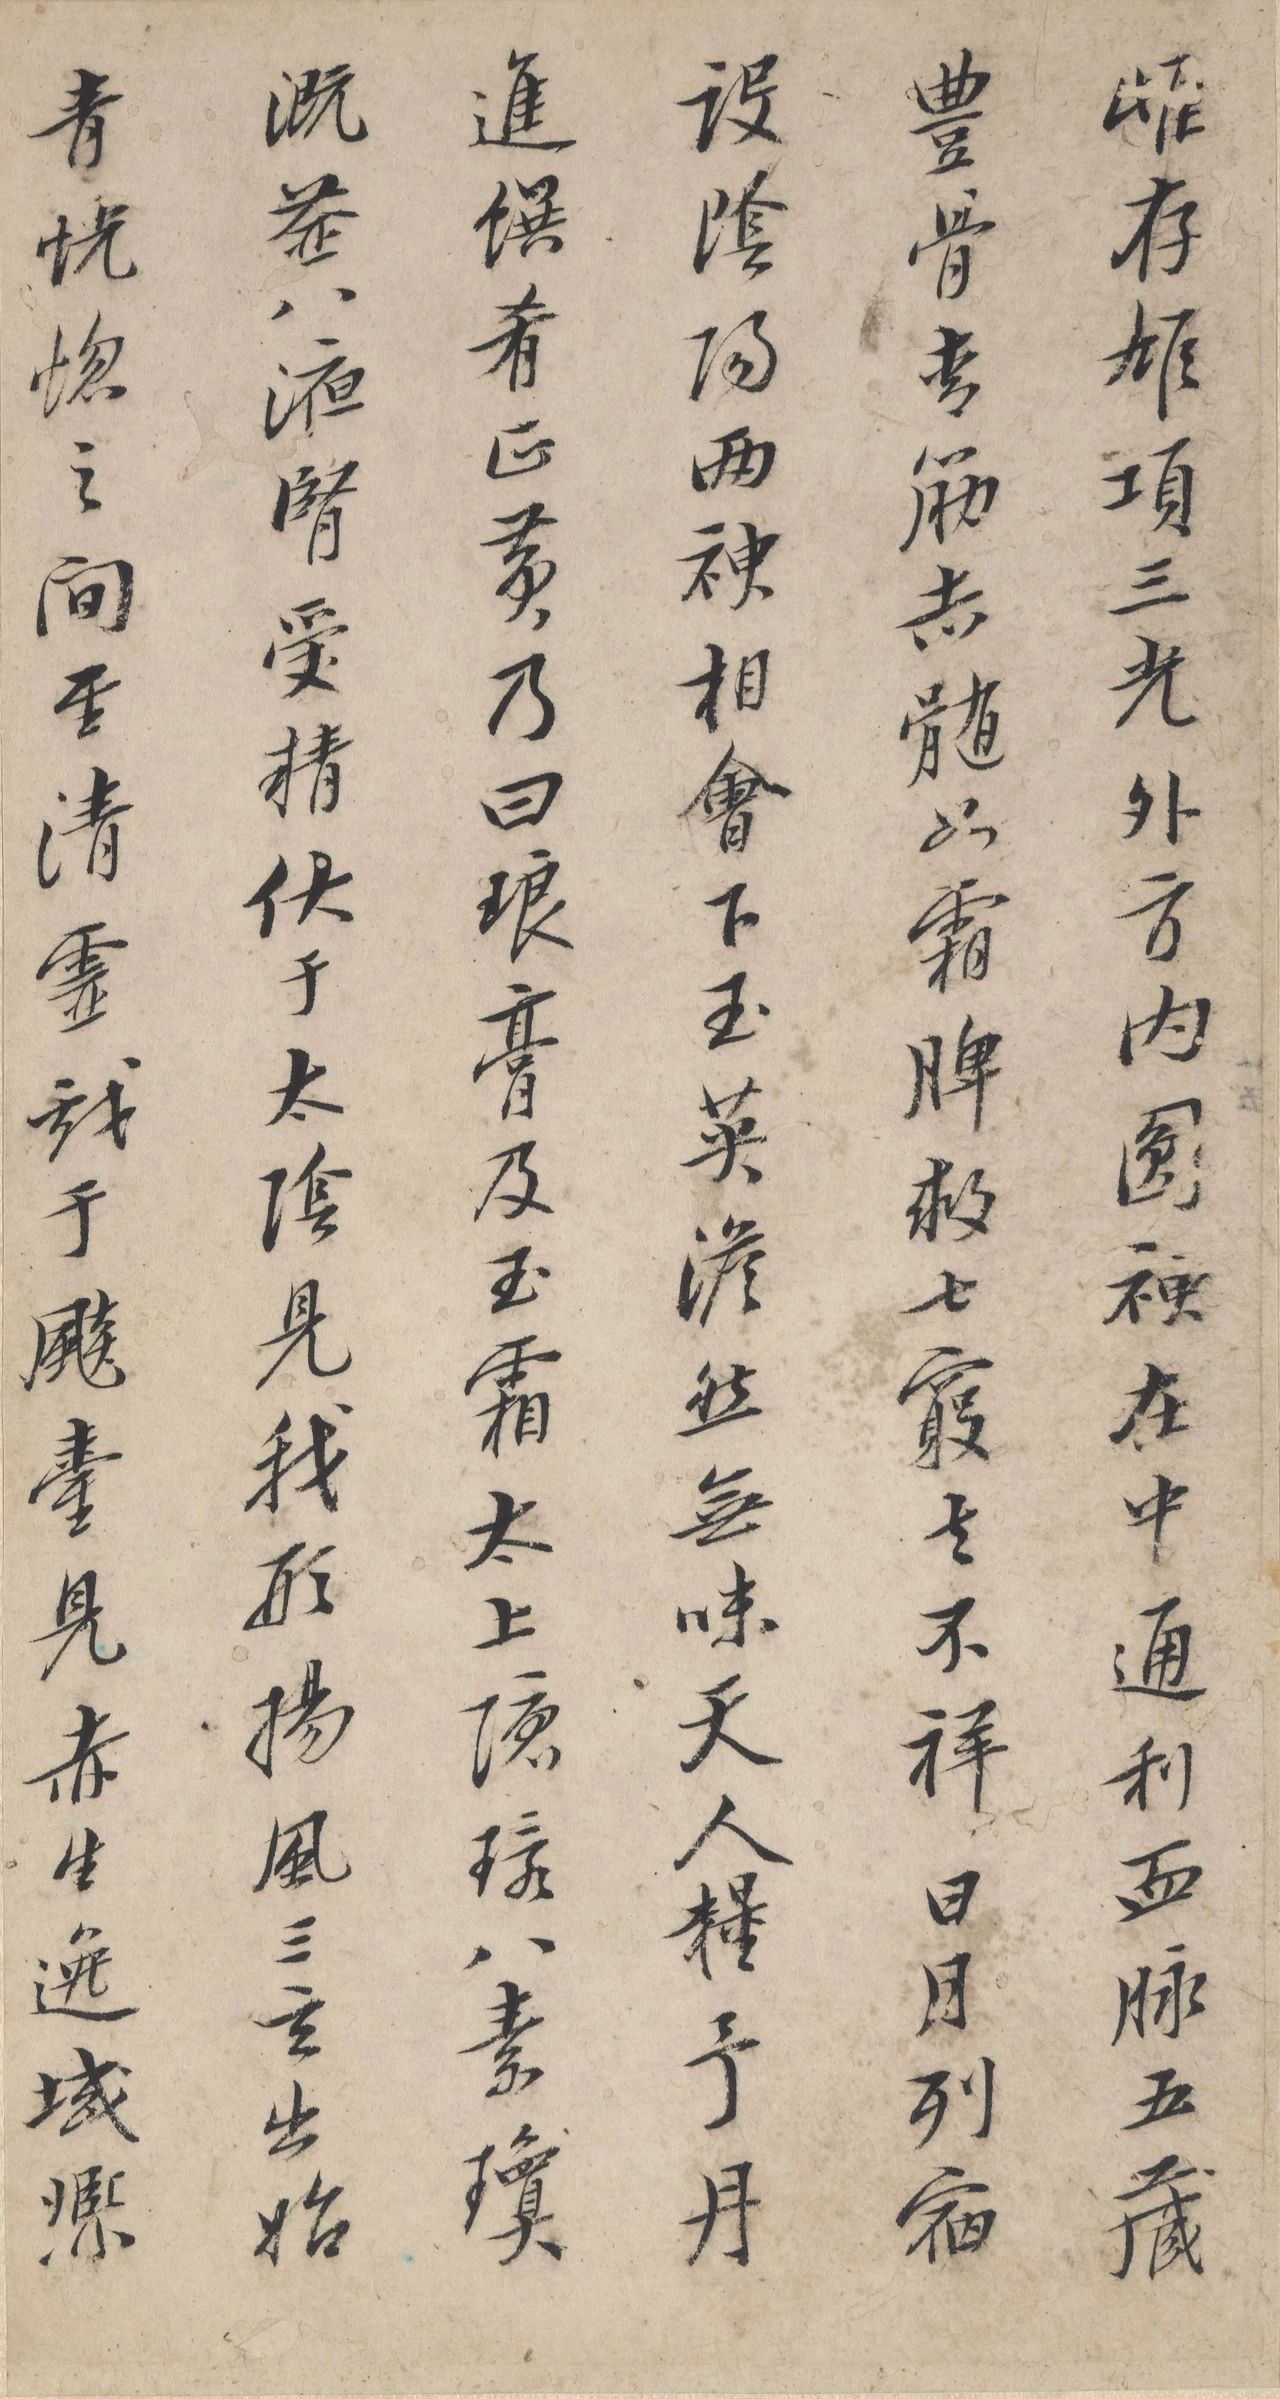 存雄項三光外方内圓神在中通利血脉五藏
豐骨青筋赤髓如霜脾救七竅去不祥日月列宿
設陰陽兩神相會下玉英澹然無味天人糧子丹
進饌肴正黄乃曰琅膏及玉霜太上隱環八素瓊
溉益八液腎受精伏于太陰見我形揚風三玄出始
青恍惚之間至清靈戲于飈臺見赤生逸域熙